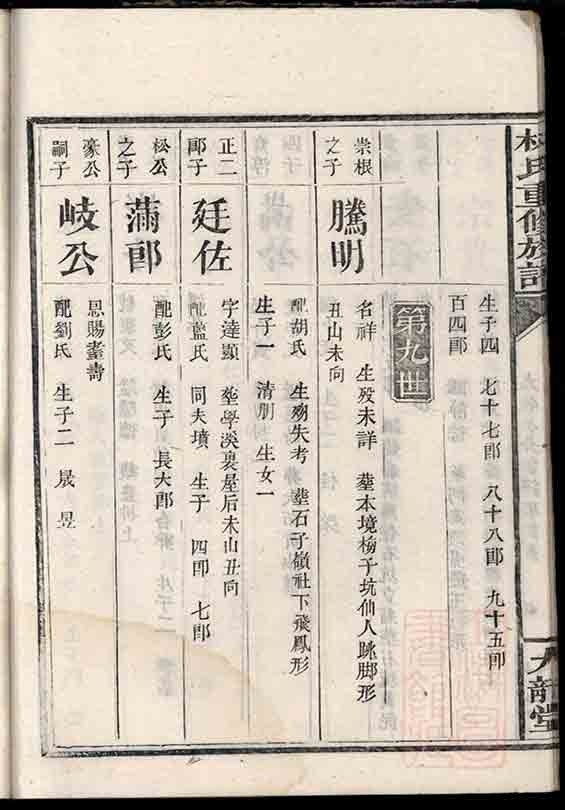 林氏重修族譜
九龍堂
生子四 七十七郎 八十八郎 九十五郎
百四郎
第九世
崇根
之子
騰明
名祥 生歿未詳 墓本境橋子坑仙人跳脚形
丑山未向
配胡氏 生歿失考 墓石子嶺社下飛鳳形
生子一 清朋 生女一
正二
郎子
廷佐
字達顯 墓學溪裏屋后未山丑向
配藍氏 同夫墳 生子 四郎 七郎
松公
之子
滿郎
配彭氏 生子 長大郎
豪公
嗣子
岐公
恩賜耆壽
配劉氏 生子二 晟 昱